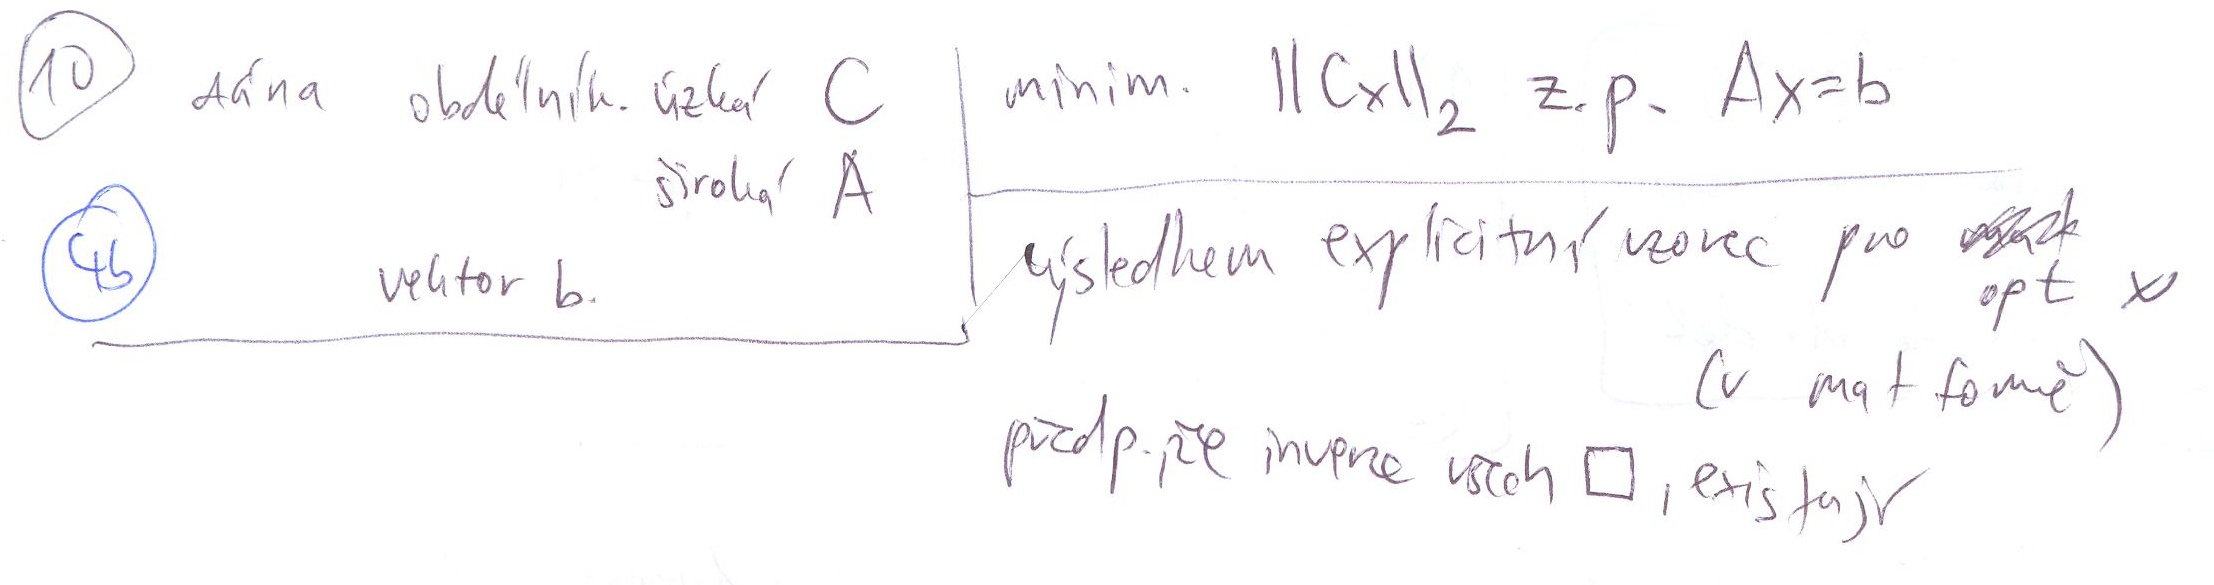 10
dána obdélník. úzká C
široká A
4b
vektor b.
minim. ||Cx||₂ z.p. Ax=b
výsledkem explicitní vzorec pro
opt x
(v mat formě)
předp., že inverze všech □, existují